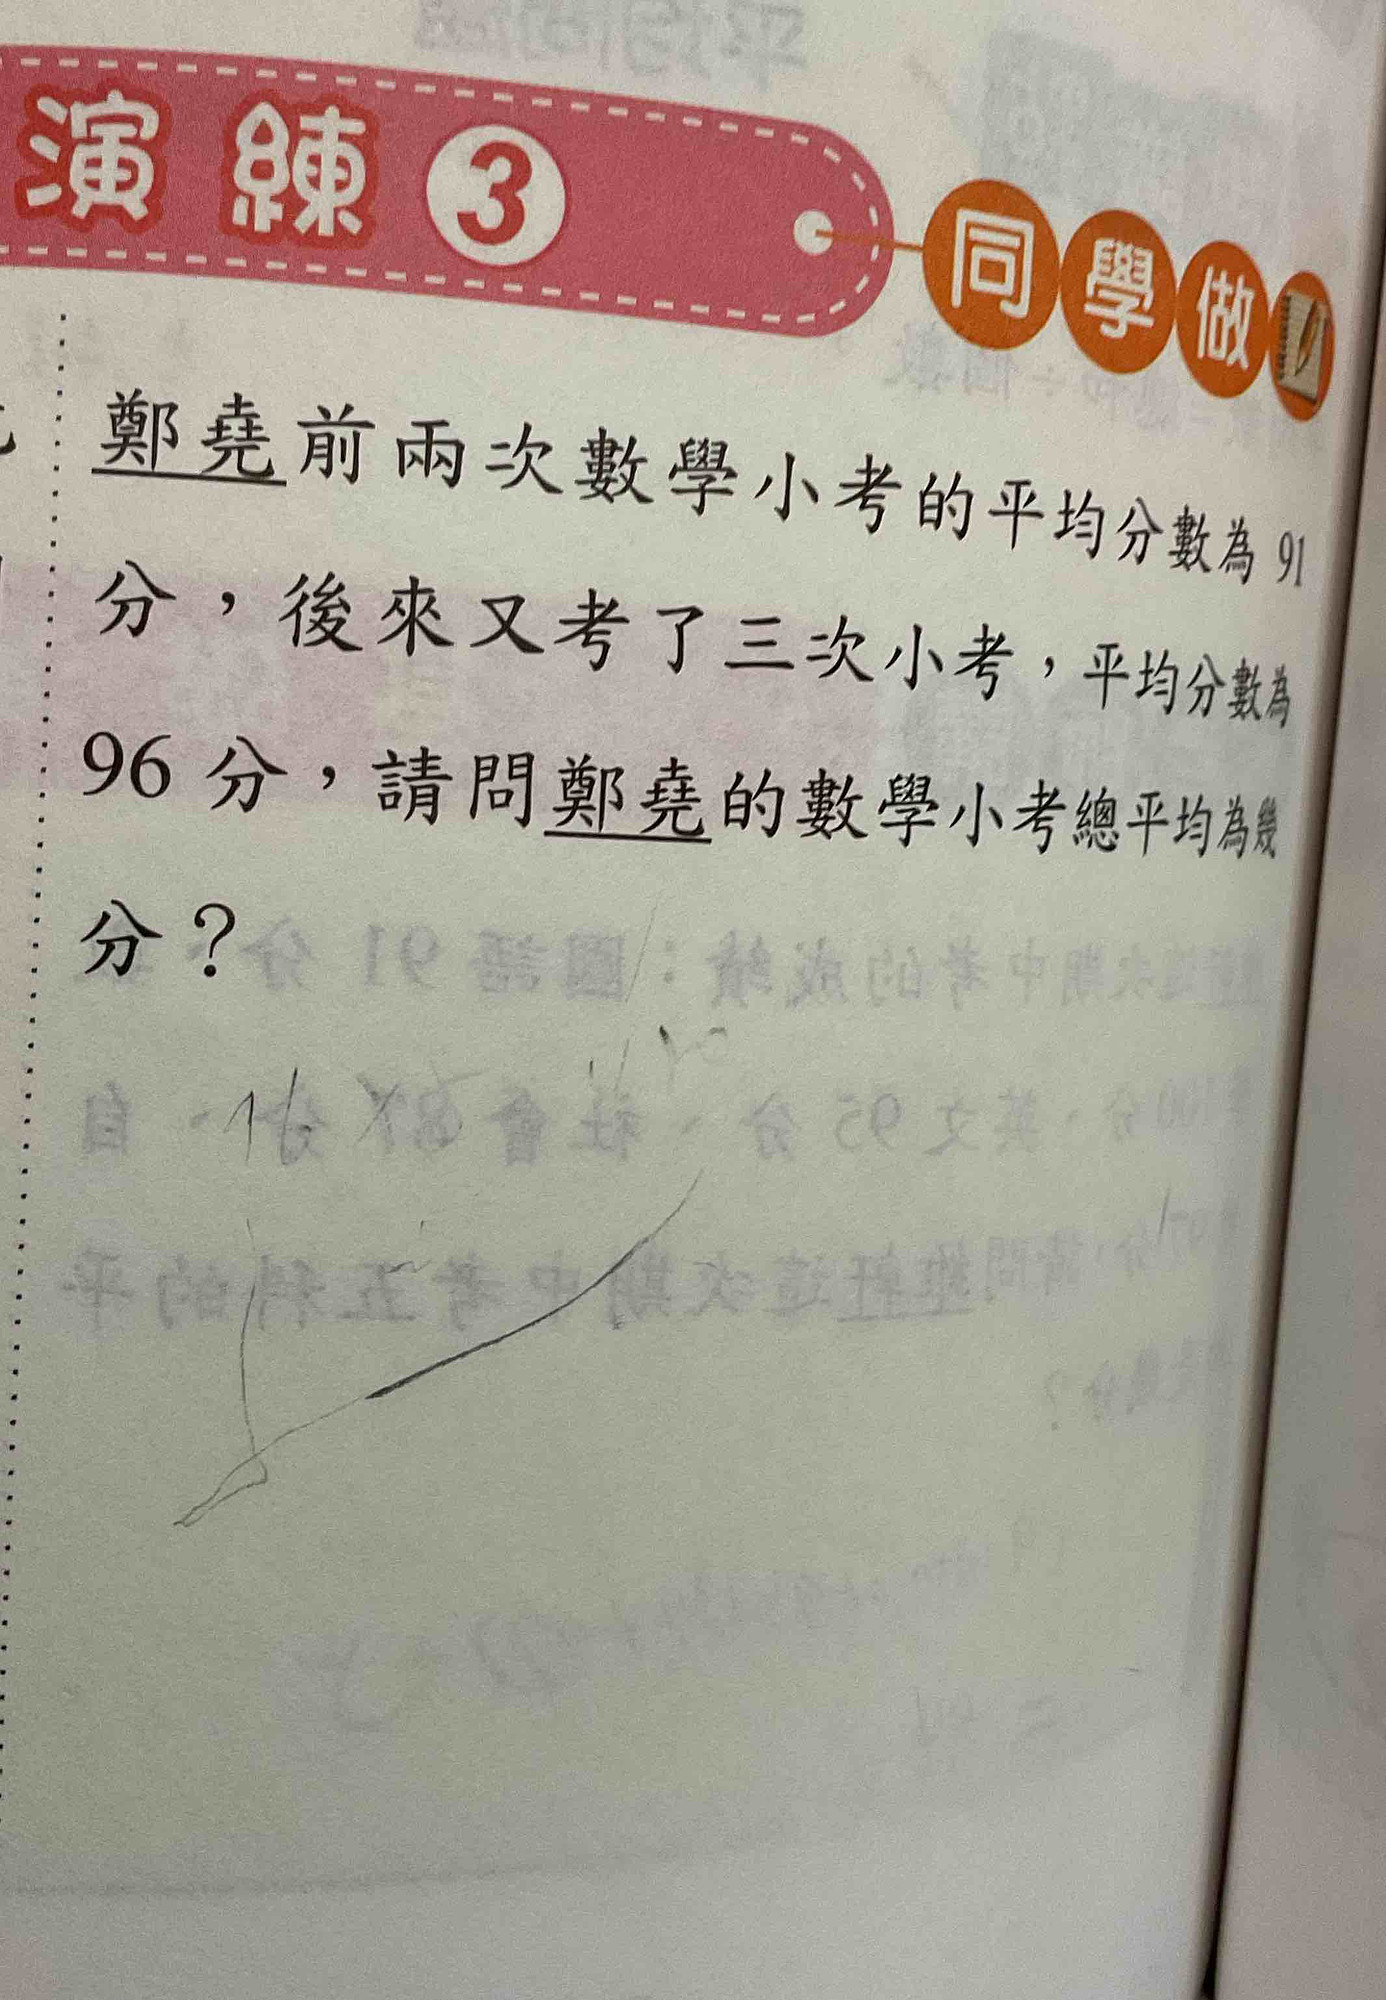 演練3
同學做
鄭堯前兩次數學小考的平均分數為 91
分，後來又考了三次小考，平均分數為
96 分，請問鄭堯的數學小考總平均為幾
分？